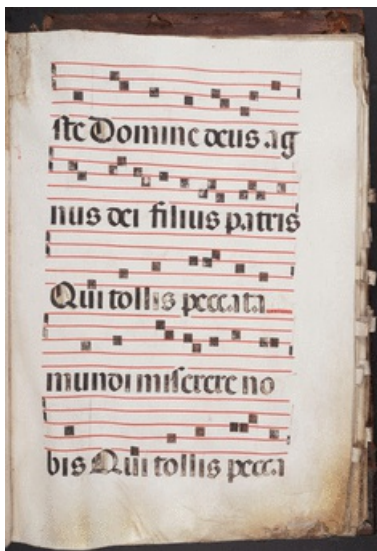 ste Domine deus ag
nus dei filius patris
Qui tollis peccata
mundi miserere no
bis Qui tollis pecca